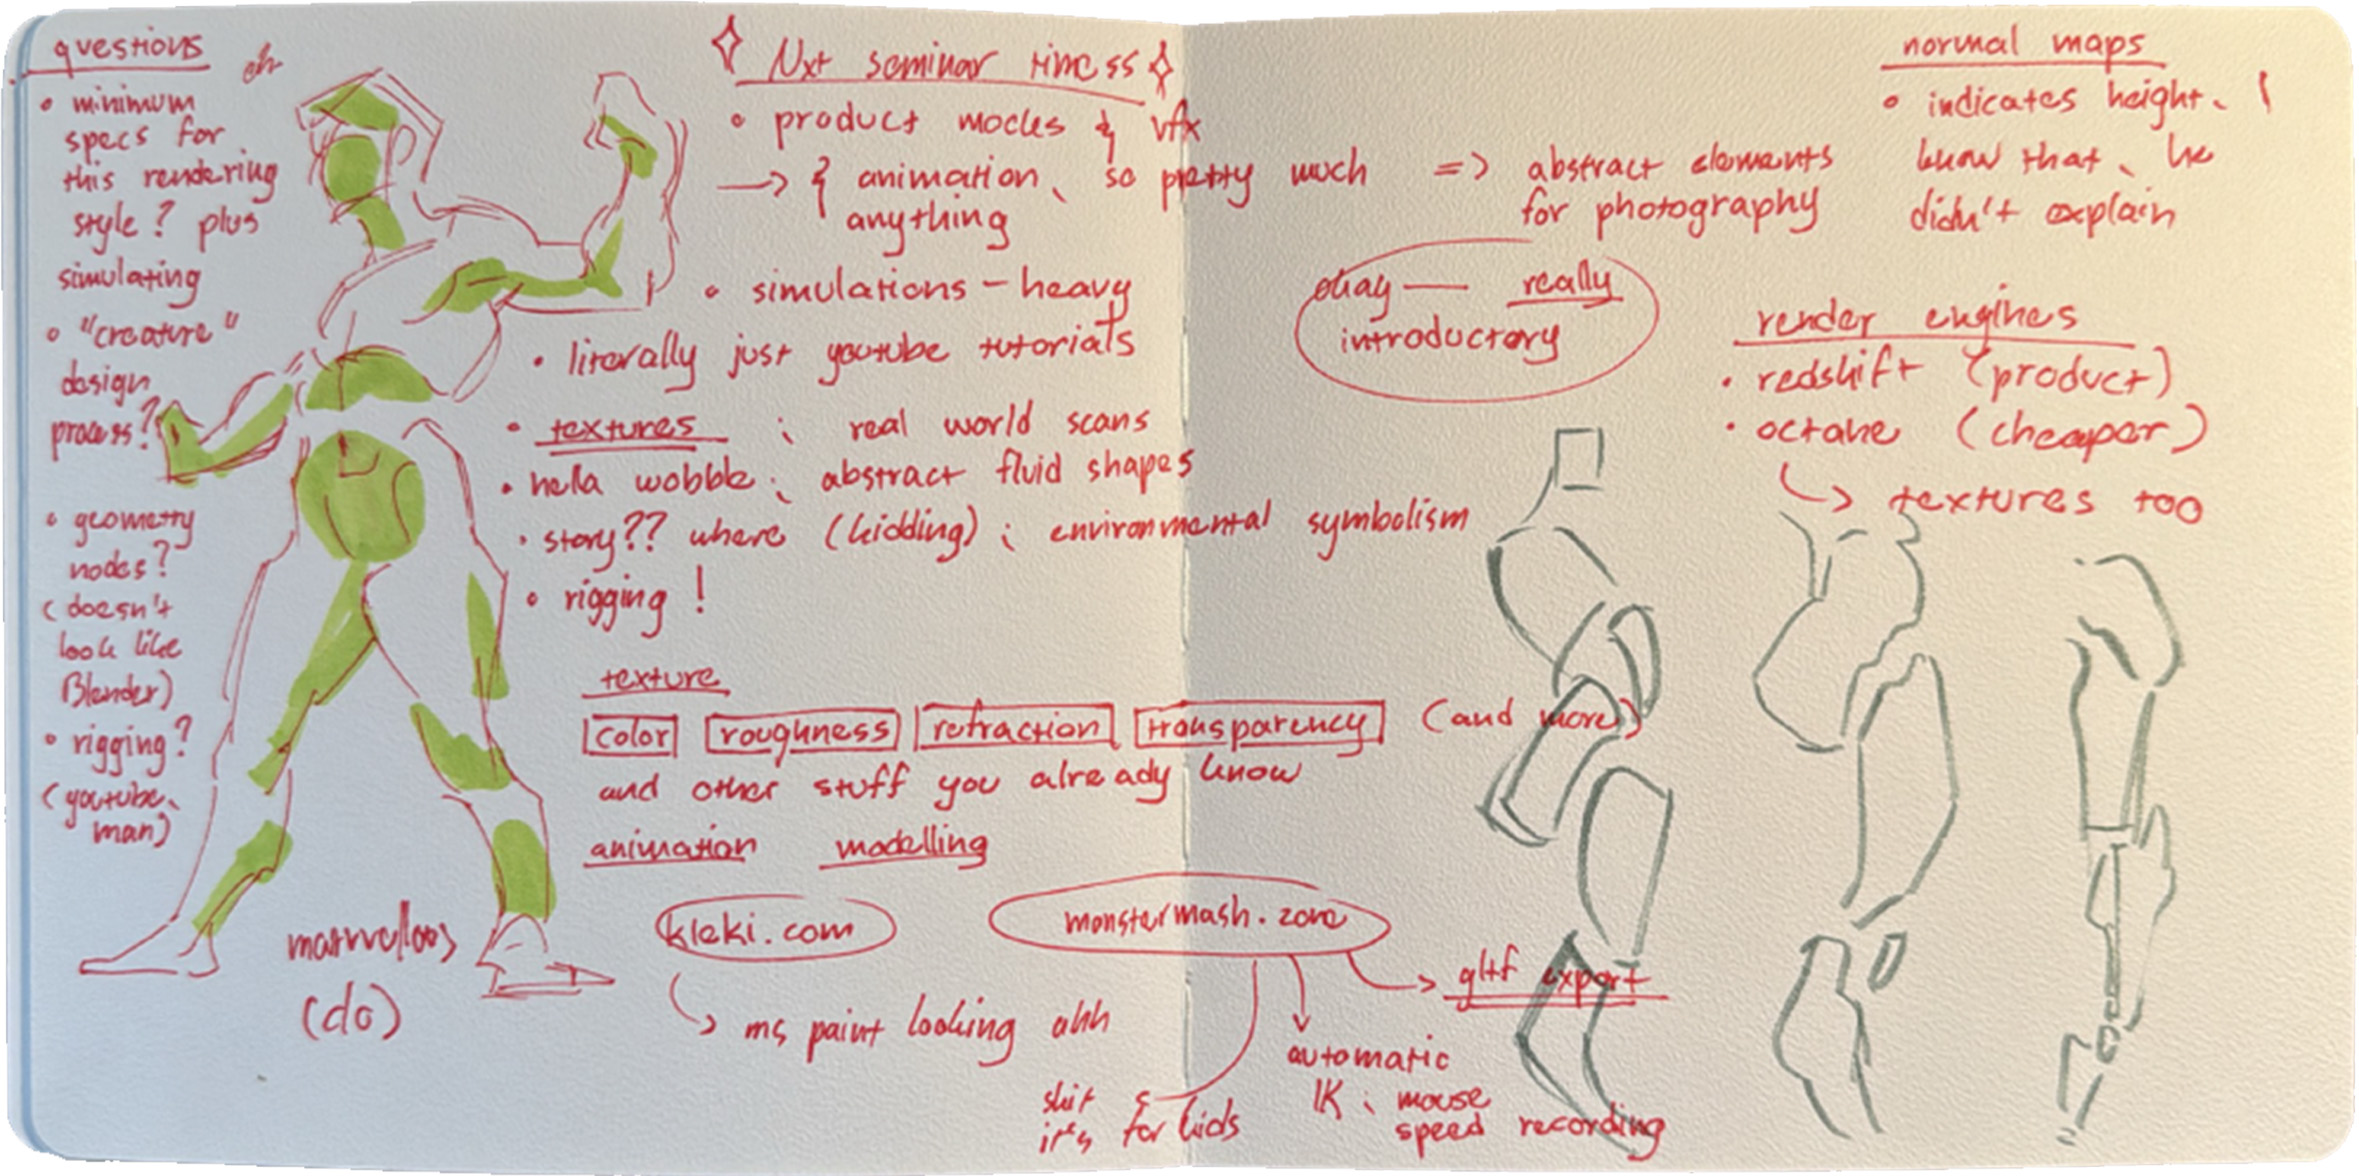 questions
eh
• minimum
specs for
this rendering
style? plus
simulating
• "creature"
design
process?
• geometry
nodes?
(doesn't
look like
Blender)
• rigging?
(youtube,
man)
marvellos
(do)
Nxt seminar timess
• product mocks & vfx
→ & animation, so pretty much
anything
=> abstract elements
for photography
• simulations - heavy
• literally just youtube tutorials
• textures ; real world scans
• hella wobble ; abstract fluid shapes
• story?? where (kidding) ; environmental symbolism
• rigging!
texture
color roughness refraction transparency (and more)
and other stuff you already know
animation modelling
kleki.com
→ ms paint looking ahh
monstermash.zone
→ gltf export
automatic
IK ; mouse
speed recording
shit
it's for kids
okay — really
introductory
normal maps
• indicates height, I
know that, he
didn't explain
render engines
• redshift (product)
• octane (cheaper)
→ textures too